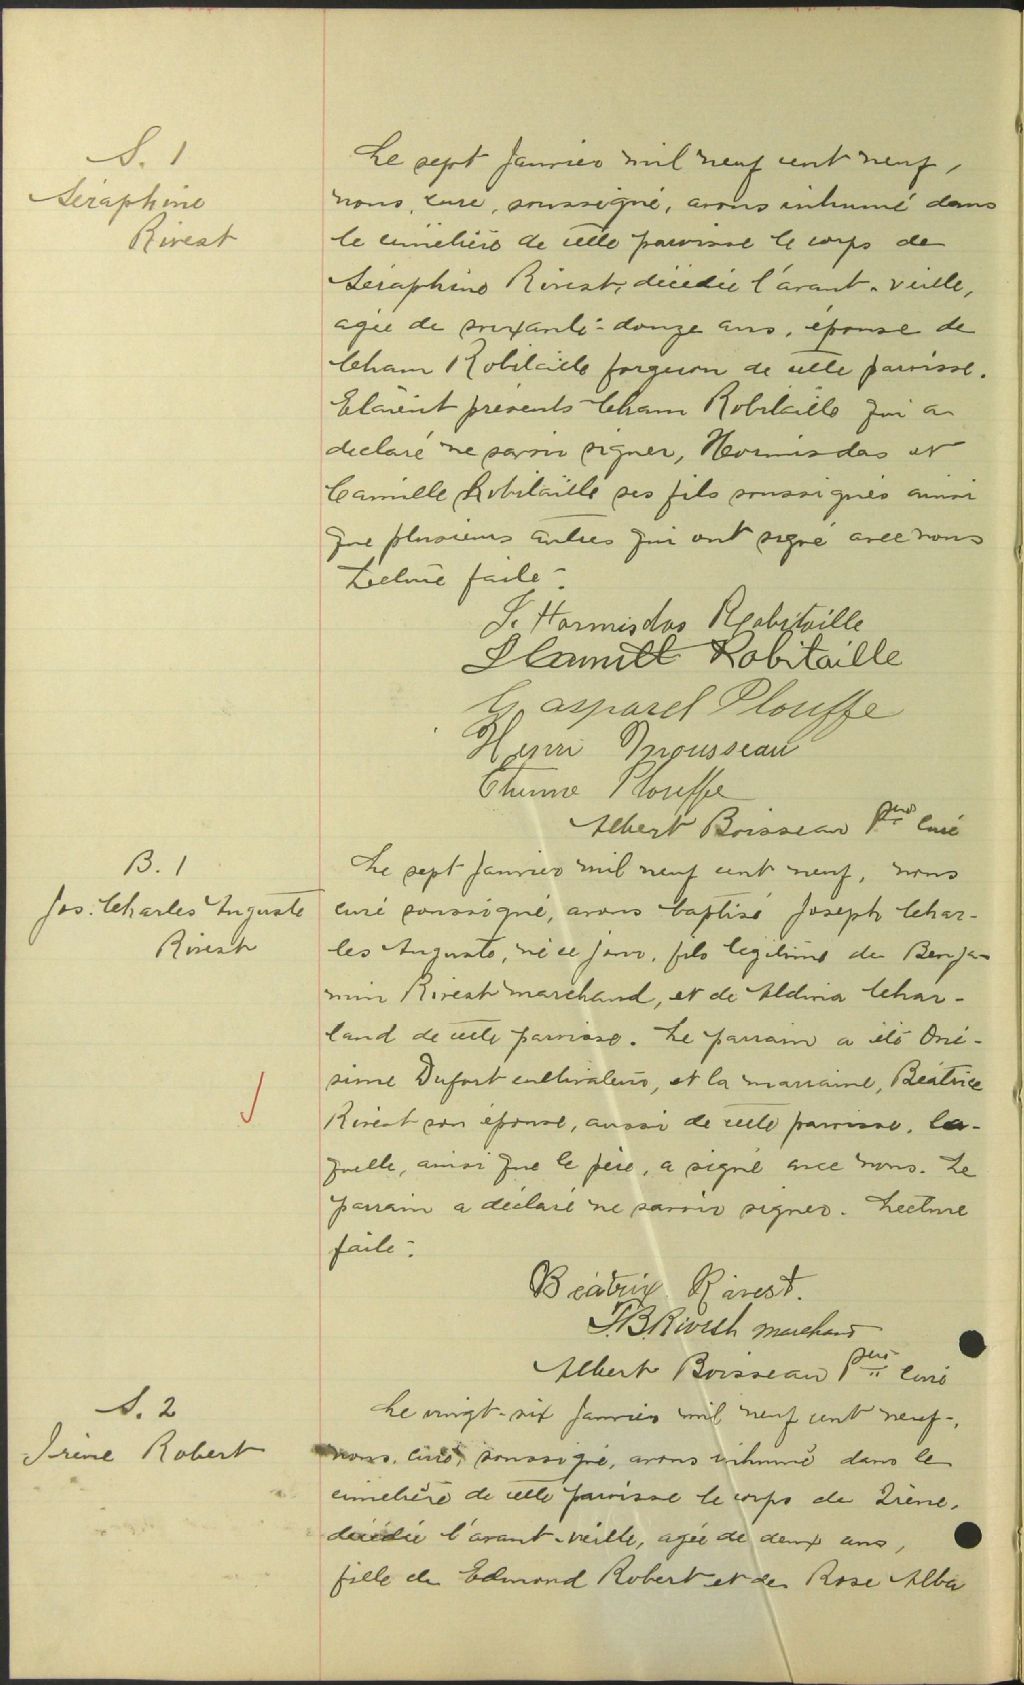 S. 1
Séraphine
Rivest
Le sept Janvier mil neuf cent neuf,
nous, curé, soussigné, avons inhumé dans
le cimetière de cette paroisse le corps de
Séraphine Rivest, décédée l'avant-veille,
agée de soixante-douze ans, épouse de
Cham Robitaille forgeron de cette paroisse.
Etaient présents Cham Robitaille qui a
declaré ne savoir signer, Hormisdas et
Camille Robitaille ses fils soussignés ainsi
que plusieurs autres qui ont signé avec nous
Lecture faite.
J. Hormisdas Robitaille
Camille Robitaille
Gaspard Plouffe
Henri Mousseau
Etienne Plouffe
Albert Boisseau Ptre Curé
B. 1
Jos. Charles Auguste
Rivest
Le sept Janvier mil neuf cent neuf, nous
curé soussigné, avons baptisé Joseph Char-
les Auguste, né ce jour, fils légitime de Benja-
min Rivest marchand, et de Aldina Char-
land de cette paroisse. Le parrain a été Oné-
sime Dufort cultivateur, et la marraine, Béatrice
Rivest son épouse, aussi de cette paroisse, la-
quelle, ainsi que le père, a signé avec nous. Le
parrain a déclaré ne savoir signer. Lecture
faite.
Béatrix Rivest.
J.B. Rivest marchand
Albert Boisseau Ptre Curé
S. 2
Irène Robert
Le vingt-six Janvier mil neuf cent neuf,
nous, curé, soussigné, avons inhumé dans le
cimetière de cette paroisse le corps de Irène,
décédée l'avant-veille, agée de deux ans,
fille de Edmond Robert et de Rose Alba